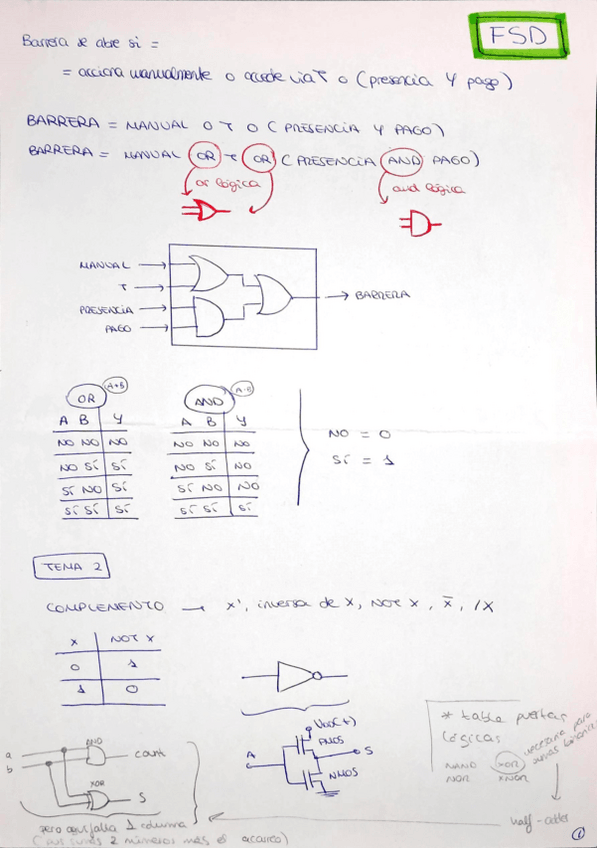 FSD
Barrera se abre si =
= acciona manualmente o accede via T o (presencia Y pago)
BARRERA = MANUAL O T O (PRESENCIA Y PAGO)
BARRERA = MANUAL OR T OR (PRESENCIA AND PAGO)
or lógica
and lógica
MANUAL
T
PRESENCIA
PAGO
BARRERA
OR A+B
A B Y
NO NO NO
NO SÍ SÍ
SÍ NO SÍ
SÍ SÍ SÍ
AND A·B
A B Y
NO NO NO
NO SÍ NO
SÍ NO NO
SÍ SÍ SÍ
NO = 0
SÍ = 1
TEMA 2
COMPLEMENTO → x', inversa de x, NOT x, x̄, /x
X NOT X
0 1
1 0
PMOS
A
S
NMOS
* tabla puertas
lógicas
NAND XOR
NOR XNOR
necesaria para
sumas
a
b
AND
cout
XOR
S
half-adder
pero aquí falta 1 columna
(sus sumas 2 números más el acarreo)
1